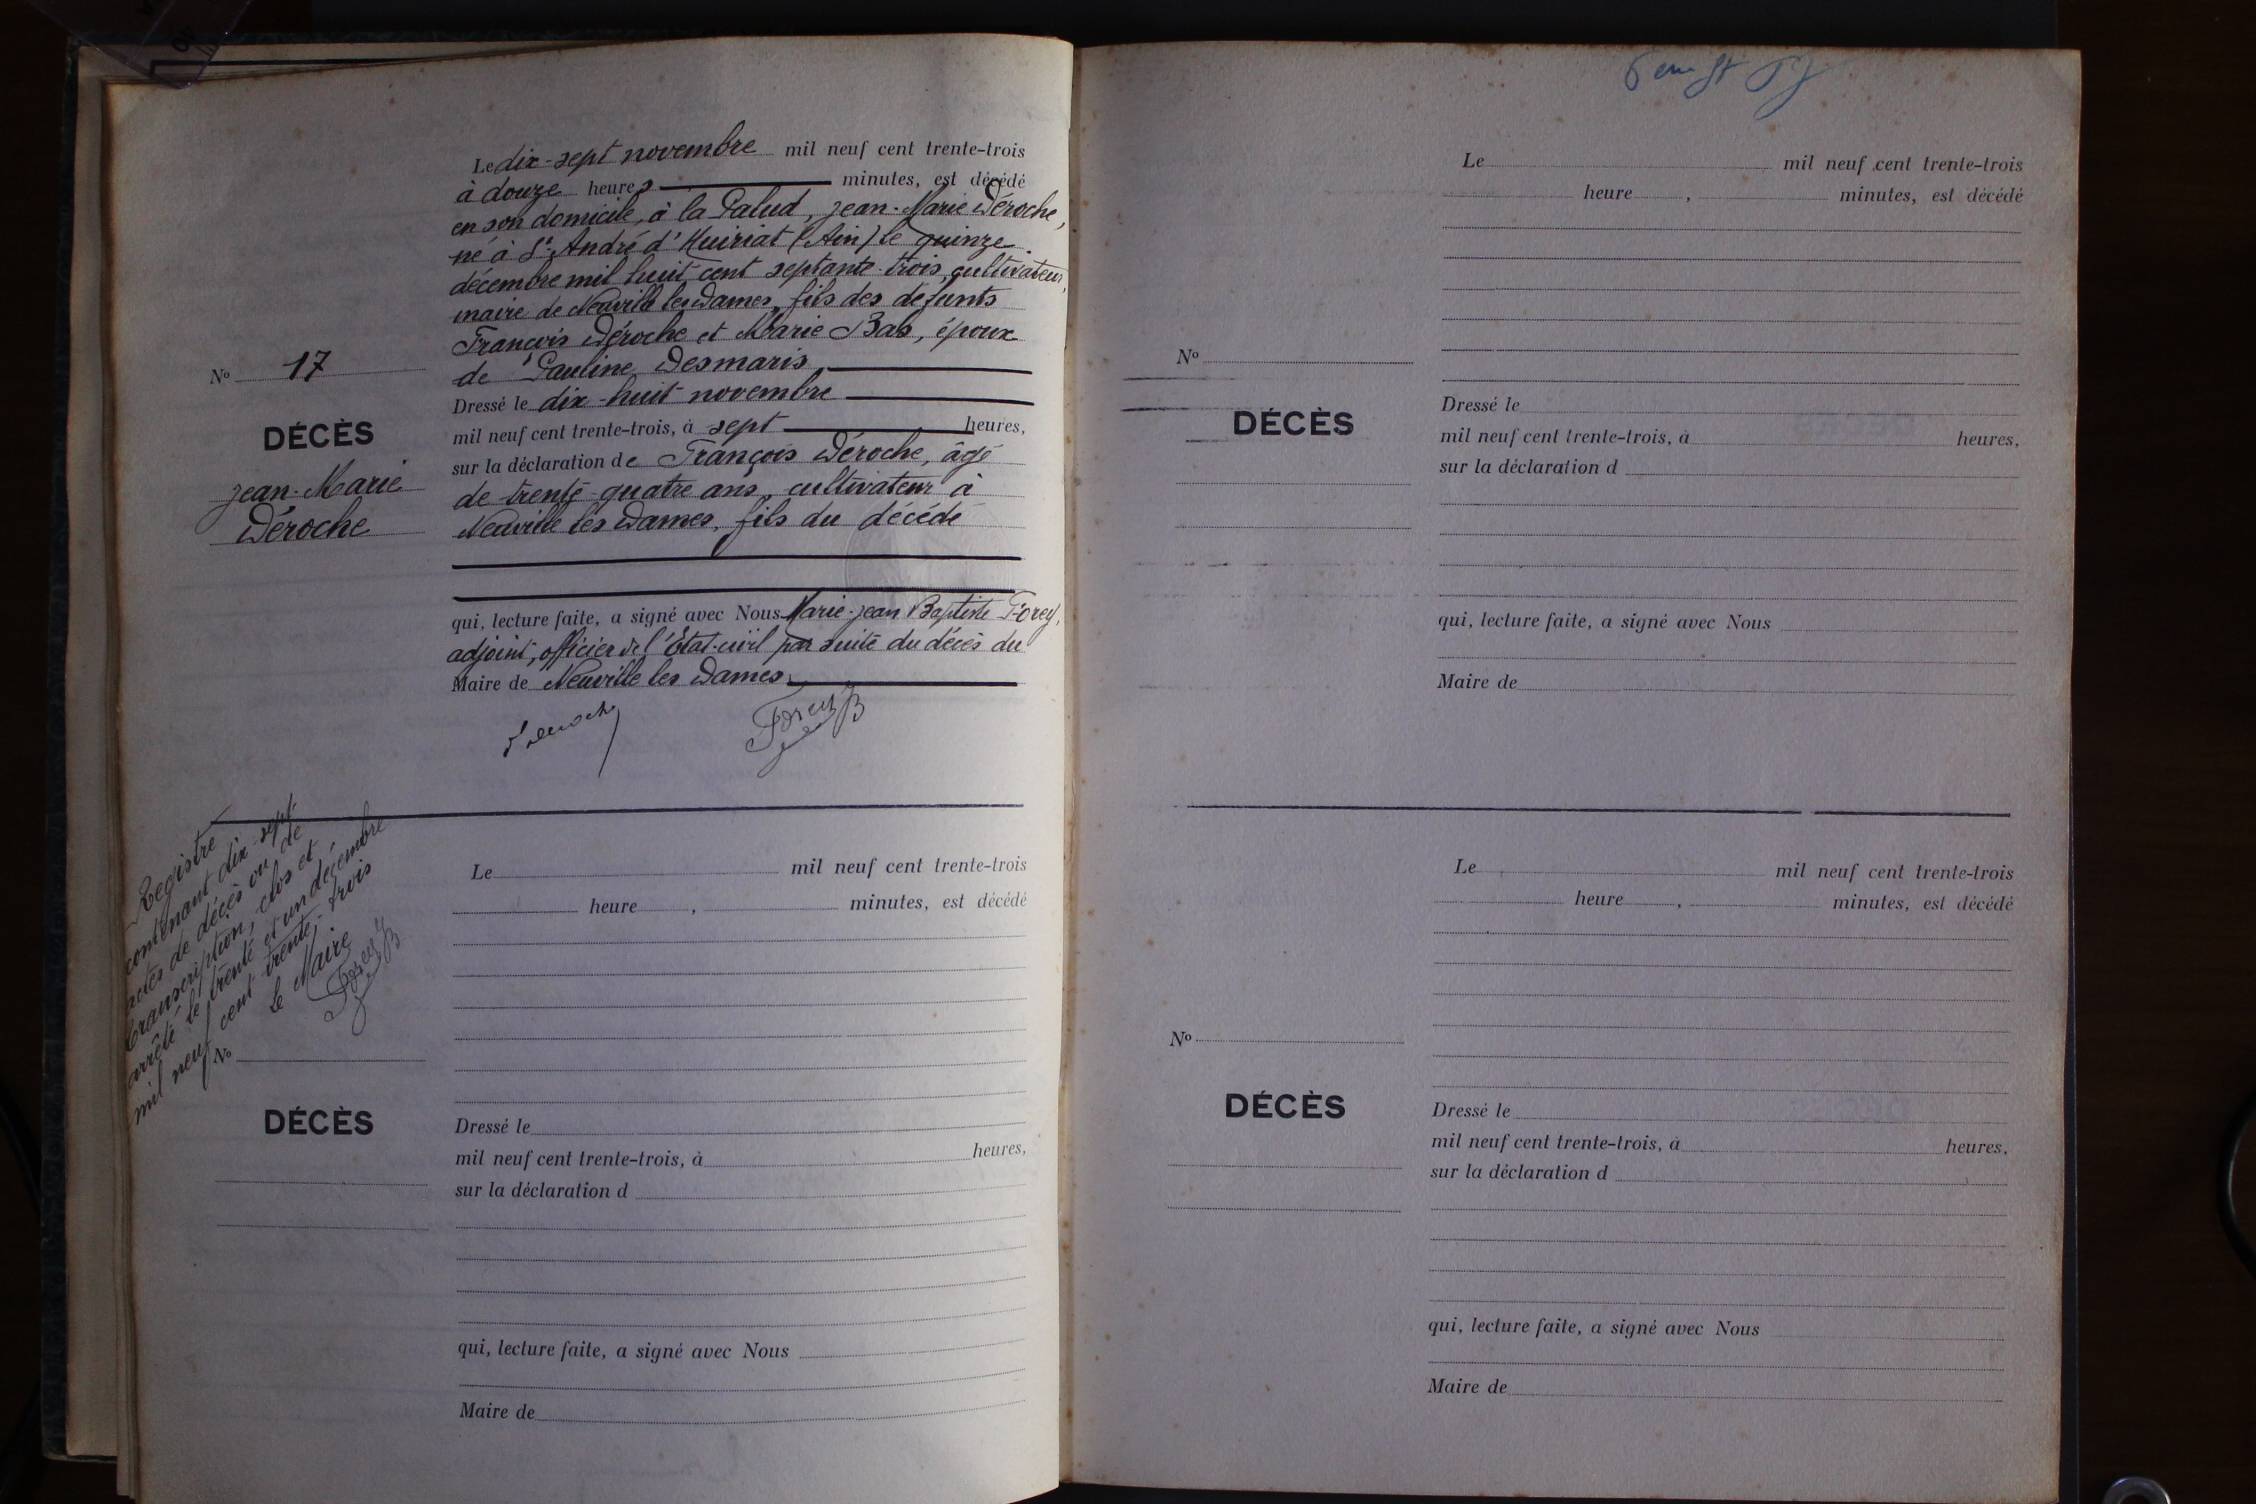 Le dix-sept novembre mil neuf cent trente-trois
à douze heures minutes, est décédé
en son domicile, à la Palud, Jean-Marie Déroche,
né à St André d'Huiriat (Ain) le quinze
décembre mil huit cent septante-trois, cultivateur,
maire de Neuville les Dames, fils des défunts
François Déroche et Marie Bas, époux
de Pauline Desmaris
No 17
DÉCÈS
Jean-Marie
Déroche
Dressé le dix-huit novembre
mil neuf cent trente-trois, à sept heures,
sur la déclaration de François Déroche, âgé
de trente-quatre ans, cultivateur à
Neuville les Dames, fils du décédé
qui, lecture faite, a signé avec Nous Marie-Jean Baptiste Forey,
adjoint, officier de l'Etat-civil par suite du décès du
Maire de Neuville les Dames
Deroche
Forey JB
Registre
contenant dix-sept
actes de décès ou de
transcription, clos et
arrêté le trente et un décembre
mil neuf cent trente-trois
Le Maire
Forey JB
Le mil neuf cent trente-trois
heure , minutes, est décédé
No
DÉCÈS
Dressé le
mil neuf cent trente-trois, à heures,
sur la déclaration d
qui, lecture faite, a signé avec Nous
Maire de
Le mil neuf cent trente-trois
heure , minutes, est décédé
No
DÉCÈS
Dressé le
mil neuf cent trente-trois, à heures,
sur la déclaration d
qui, lecture faite, a signé avec Nous
Maire de
Le mil neuf cent trente-trois
heure , minutes, est décédé
No
DÉCÈS
Dressé le
mil neuf cent trente-trois, à heures,
sur la déclaration d
qui, lecture faite, a signé avec Nous
Maire de